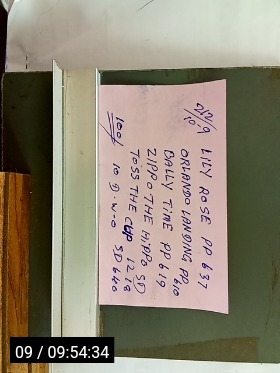 LILY ROSE PP 637
ORLANDO LANDING PP 610
BALLY TIME PP 619
ZIPPO THE HIPPO SD
TOSS THE CUP 1218
10 D.W.O S.D 640
09 / 09:54:34